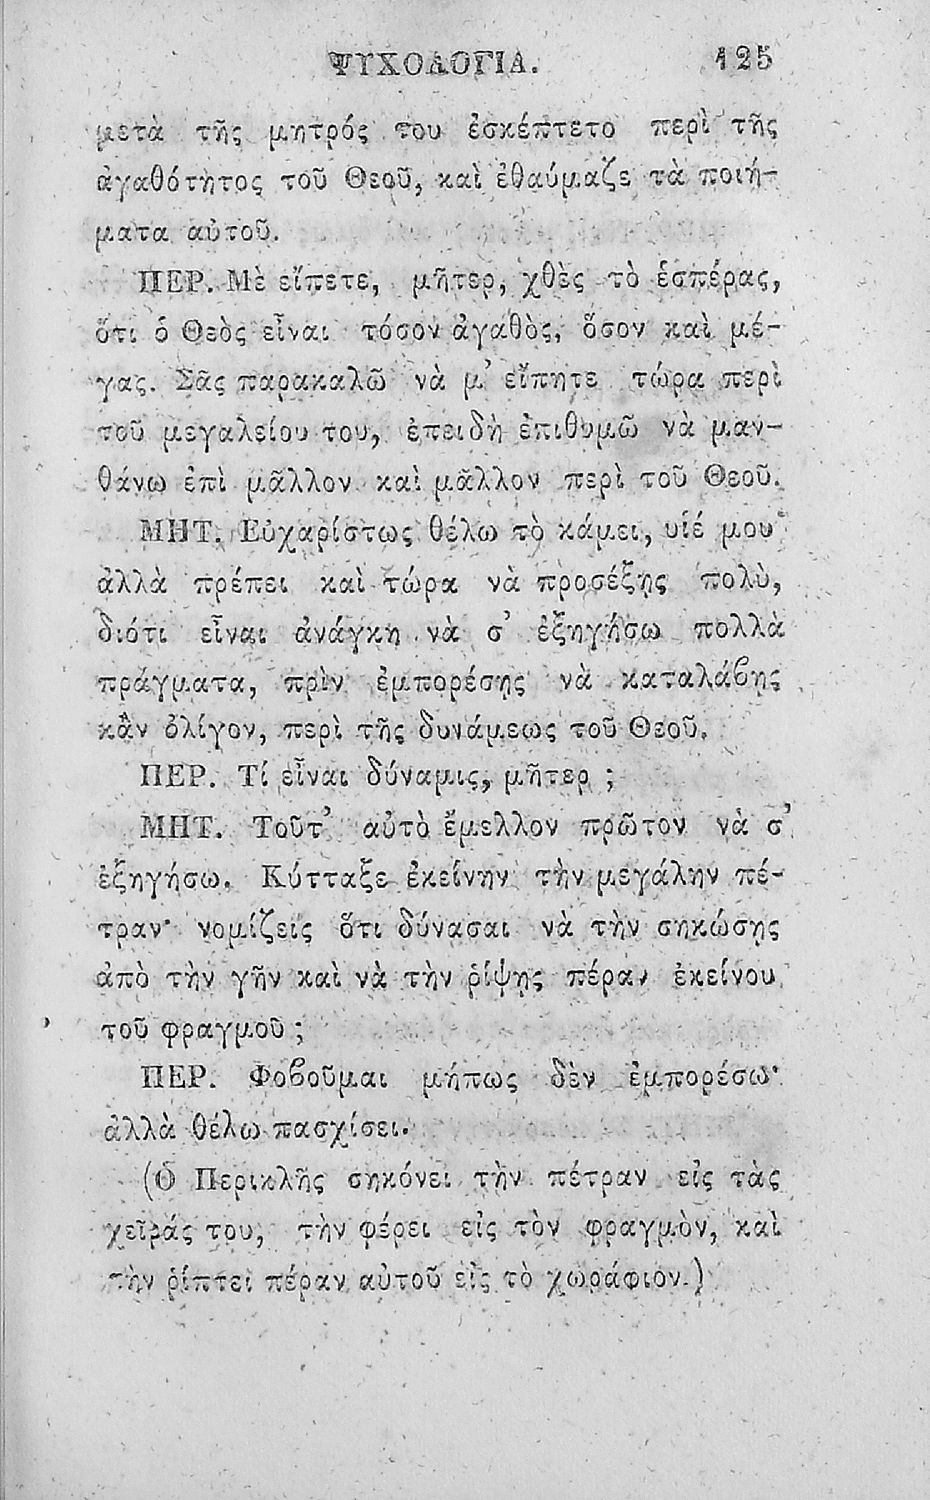 ΨΥΧΟΛΟΓΙΑ. 125
μετὰ τῆς μητρός του ἐσκέπτετο περὶ τῆς
ἀγαθότητος τοῦ Θεοῦ, καὶ ἐθαύμαζε τὰ ποιή-
ματα αὐτοῦ.
ΠΕΡ. Μὲ εἴπετε, μῆτερ, χθὲς τὸ ἑσπέρας,
ὅτι ὁ Θεὸς εἶναι τόσον ἀγαθὸς, ὅσον καὶ μέ-
γας. Σᾶς παρακαλῶ νὰ μ’ εἴπητε τώρα περὶ
τοῦ μεγαλείου του, ἐπειδὴ ἐπιθυμῶ νὰ μαν-
θάνω ἐπὶ μᾶλλον καὶ μᾶλλον περὶ τοῦ Θεοῦ.
ΜΗΤ. Εὐχαρίστως θέλω τὸ κάμει, υἱέ μου·
ἀλλὰ πρέπει καὶ τώρα νὰ προσέξῃς πολὺ,
διότι εἶναι ἀνάγκη νὰ σ’ ἐξηγήσω πολλὰ
πράγματα, πρὶν ἐμπορέσῃς νὰ καταλάϐῃς
κᾂν ὀλίγον, περὶ τῆς δυνάμεως τοῦ Θεοῦ.
ΠΕΡ. Τί εἶναι δύναμις, μῆτερ ;
ΜΗΤ. Τοῦτ’ αὐτὸ ἔμελλον πρῶτον νὰ σ’
ἐξηγήσω. Κύτταξε ἐκείνην τὴν μεγάλην πέ-
τραν· νομίζεις ὅτι δύνασαι νὰ τὴν σηκώσῃς
ἀπὸ τὴν γῆν καὶ νὰ τὴν ῥίψῃς πέραν ἐκείνου
τοῦ φραγμοῦ ;
ΠΕΡ. Φοϐοῦμαι μήπως δὲν ἐμπορέσω·
ἀλλὰ θέλω πασχίσει.
(Ὁ Περικλῆς σηκόνει τὴν πέτραν εἰς τὰς
χεῖράς του, τὴν φέρει εἰς τὸν φραγμὸν, καὶ
τὴν ῥίπτει πέραν αὐτοῦ εἰς τὸ χωράφιον.)